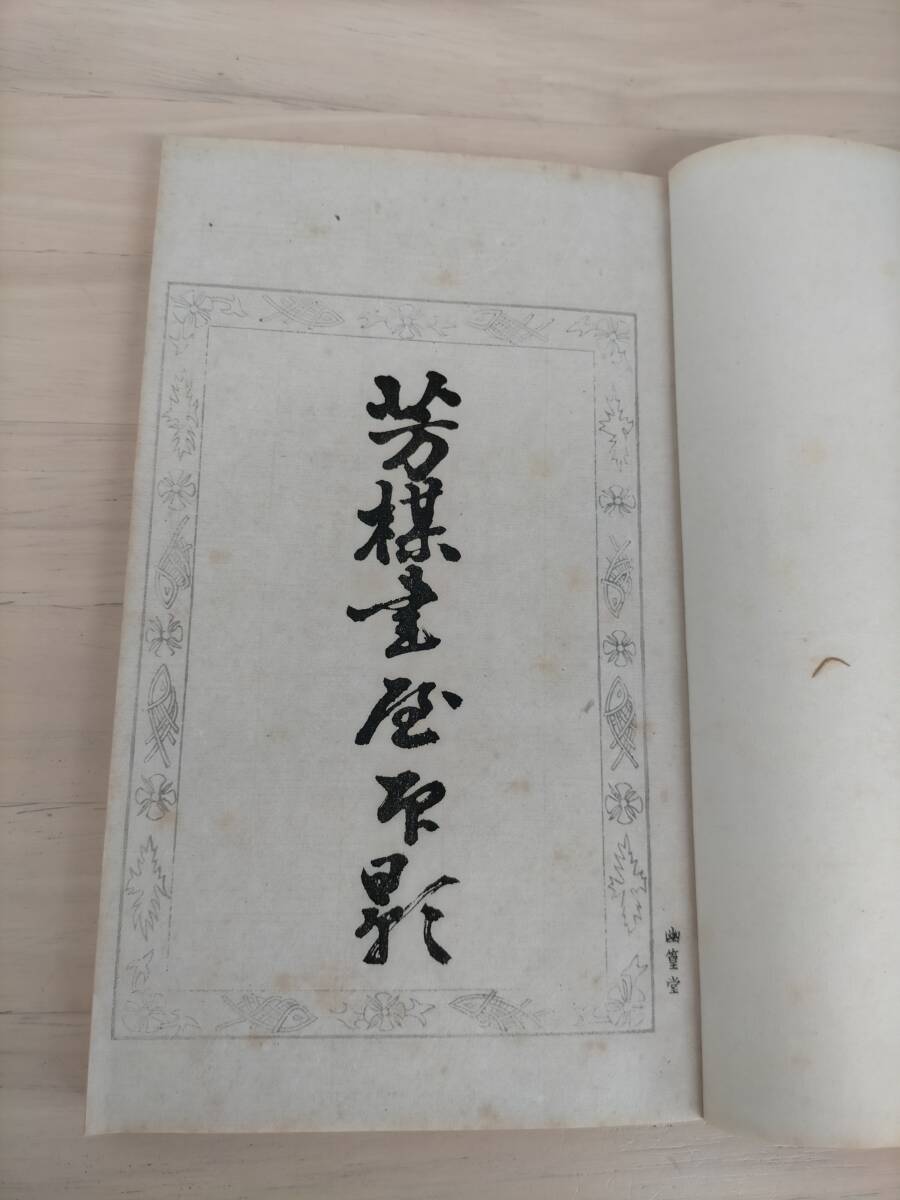 芳楳書屋印影
幽篁堂